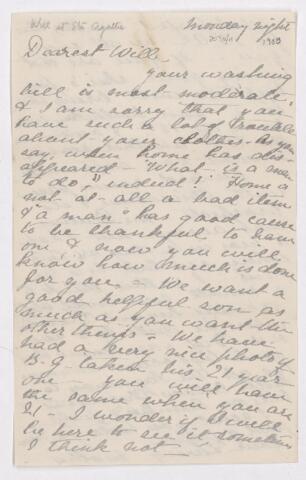 Will at Ste Agathe
Monday night
1903
Dearest Will
your washing
bill is most moderate,
& I am sorry that you
have such a lot of trouble
about your clothes. As you
say, when home has dis-
appeared - What is a man
to do, indeed! Home a
not at all a bad item
& "a man" has good cause
to be thankful to have
one & now you will
know how much is done
for you - We want a
good helpful son as
much as you want the
other things - We have
had a very nice photo of
B.G. taken his 21 year
one - you will have
the same when you are
21 - I wonder if I will
be here to see it, sometimes
I think not -